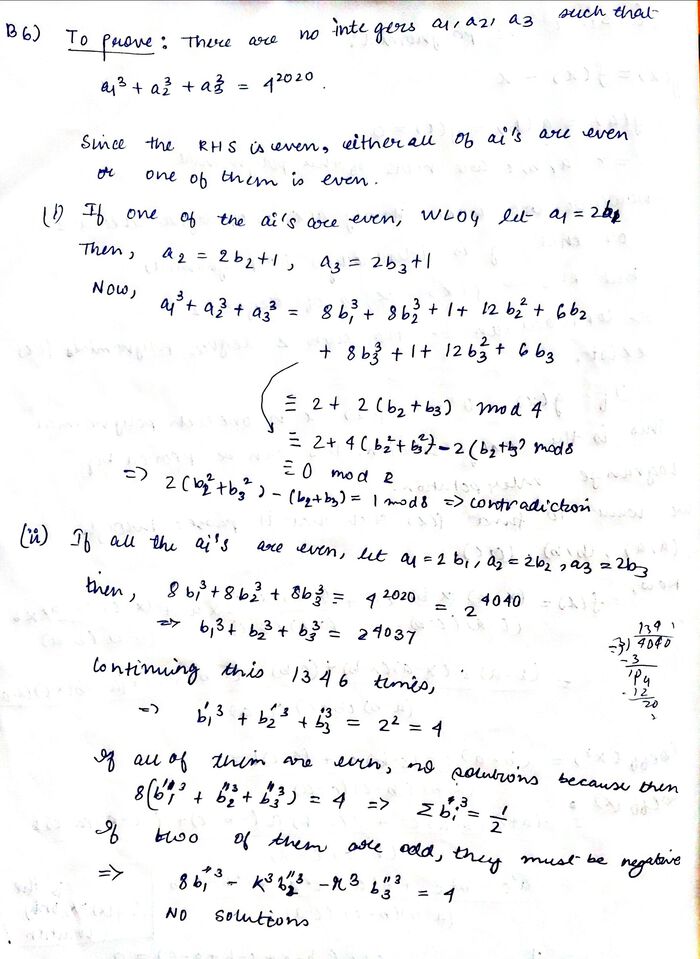 B6) To prove: There are no integers a₁, a₂, a₃ such that
a₁³ + a₂³ + a₃³ = 4²⁰²⁰.
Since the RHS is even, either all of ai's are even
or one of them is even.
(i) If one of the ai's are even, WLOG let a₁ = 2b₁
Then, a₂ = 2b₂+1, a₃ = 2b₃+1
Now, a₁³ + a₂³ + a₃³ = 8b₁³ + 8b₂³ + 1 + 12b₂² + 6b₂
+ 8b₃³ + 1 + 12b₃² + 6b₃
≡ 2 + 2(b₂+b₃) mod 4
≡ 2 + 4(b₂²+b₃²) - 2(b₂+b₃) mod 8
≡ 0 mod 2
=> 2(b₂²+b₃²) - (b₂+b₃) = 1 mod 8 => contradiction
(ii) If all the ai's are even, let a₁ = 2b₁, a₂ = 2b₂, a₃ = 2b₃
then, 8b₁³ + 8b₂³ + 8b₃³ = 4²⁰²⁰ = 2⁴⁰⁴⁰
=> b₁³ + b₂³ + b₃³ = 2⁴⁰³⁷
Continuing this 1346 times,
=> b₁'³ + b₂'³ + b₃'³ = 2² = 4
If all of them are even, no solutions because then
8(b₁''³ + b₂''³ + b₃''³) = 4 => Σbᵢ''³ = 1/2
If two of them are odd, they must be negative
=> 8b₁''³ - k³b₂''³ - r³b₃''³ = 4
No solutions
134
3) 4040
-3
12
20